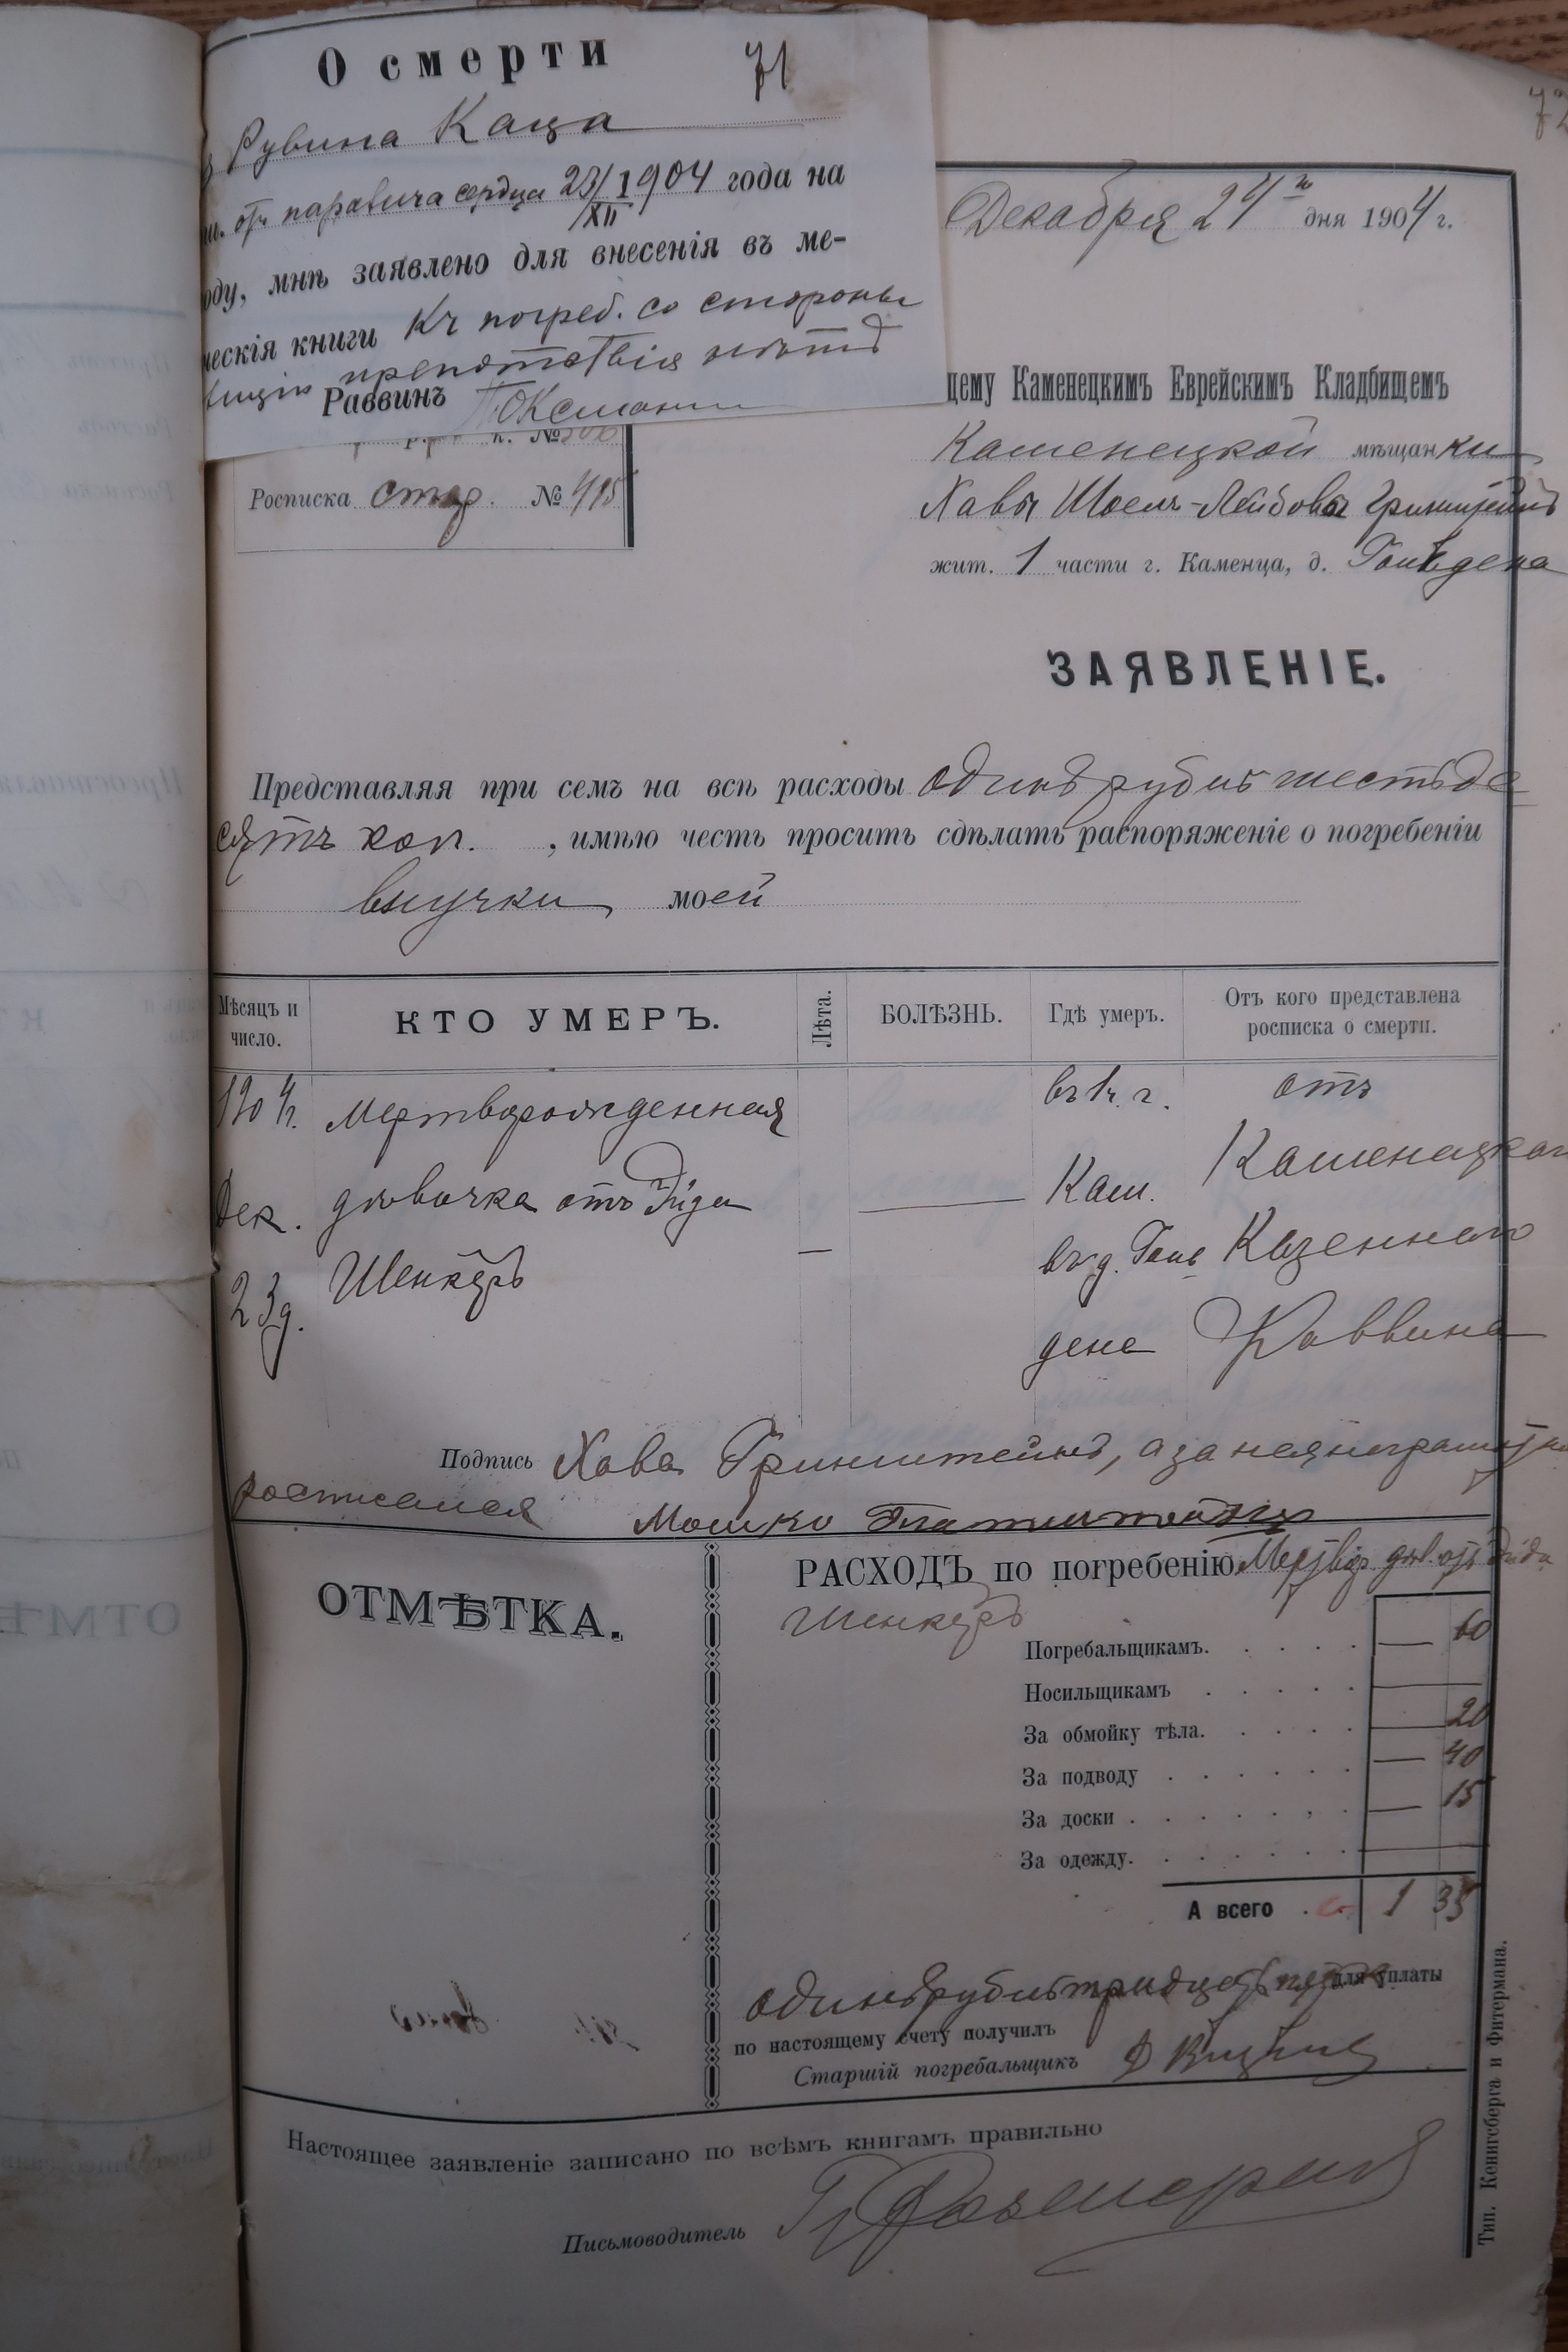 О смерти 71
Рувина Каца
отъ паралича сердца 23/XII 1904 года на
оду, мнѣ заявлено для внесенія въ ме-
ческія книги Къ погреб. со стороны
препятствія нѣтъ
Раввинъ
72
Декабря 24 дня 1904 г.
щему Каменецкимъ Еврейскимъ Кладбищемъ
к. №
Росписка стар. № 415
Каменецкой мѣщанки
Хавы Шоелъ-Лейбовы Гринштейнъ
жит. 1 части г. Каменца, д.
ЗАЯВЛЕНІЕ.
Представляя при семъ на всѣ расходы одинъ рубль шестьде
сятъ коп. , имѣю честь просить сдѣлать распоряженіе о погребеніи
внучки моей
Мѣсяцъ и число. КТО УМЕРЪ. Лѣта. БОЛѢЗНЬ. Гдѣ умеръ. Отъ кого представлена росписка о смерти.
1904 г. мертворожденная въ г. отъ
Дек. дѣвочка отъ Эйди — Кам. Каменецкаго
23 д. Шенкеръ — въ д. Казеннаго
дена Раввина
Подпись Хава Гринштейнъ, а за нея неграмотную
росписался Мошко
ОТМѢТКА.
РАСХОДЪ по погребенію Мертвор. дѣв. отъ Эйди
Шенкеръ
Погребальщикамъ. . . . . — 60
Носильщикамъ . . . . . —
За обмойку тѣла. . . . . — 20
За подводу . . . . . . — 40
За доски . . . . . . . — 15
За одежду. . . . . . . —
А всего . 1 35
одинъ рубль тридцать пять для уплаты
по настоящему счету получилъ
Старшій погребальщикъ
Настоящее заявленіе записано по всѣмъ книгамъ правильно
Письмоводитель
Тип. Кенигсберга и Фитермана.